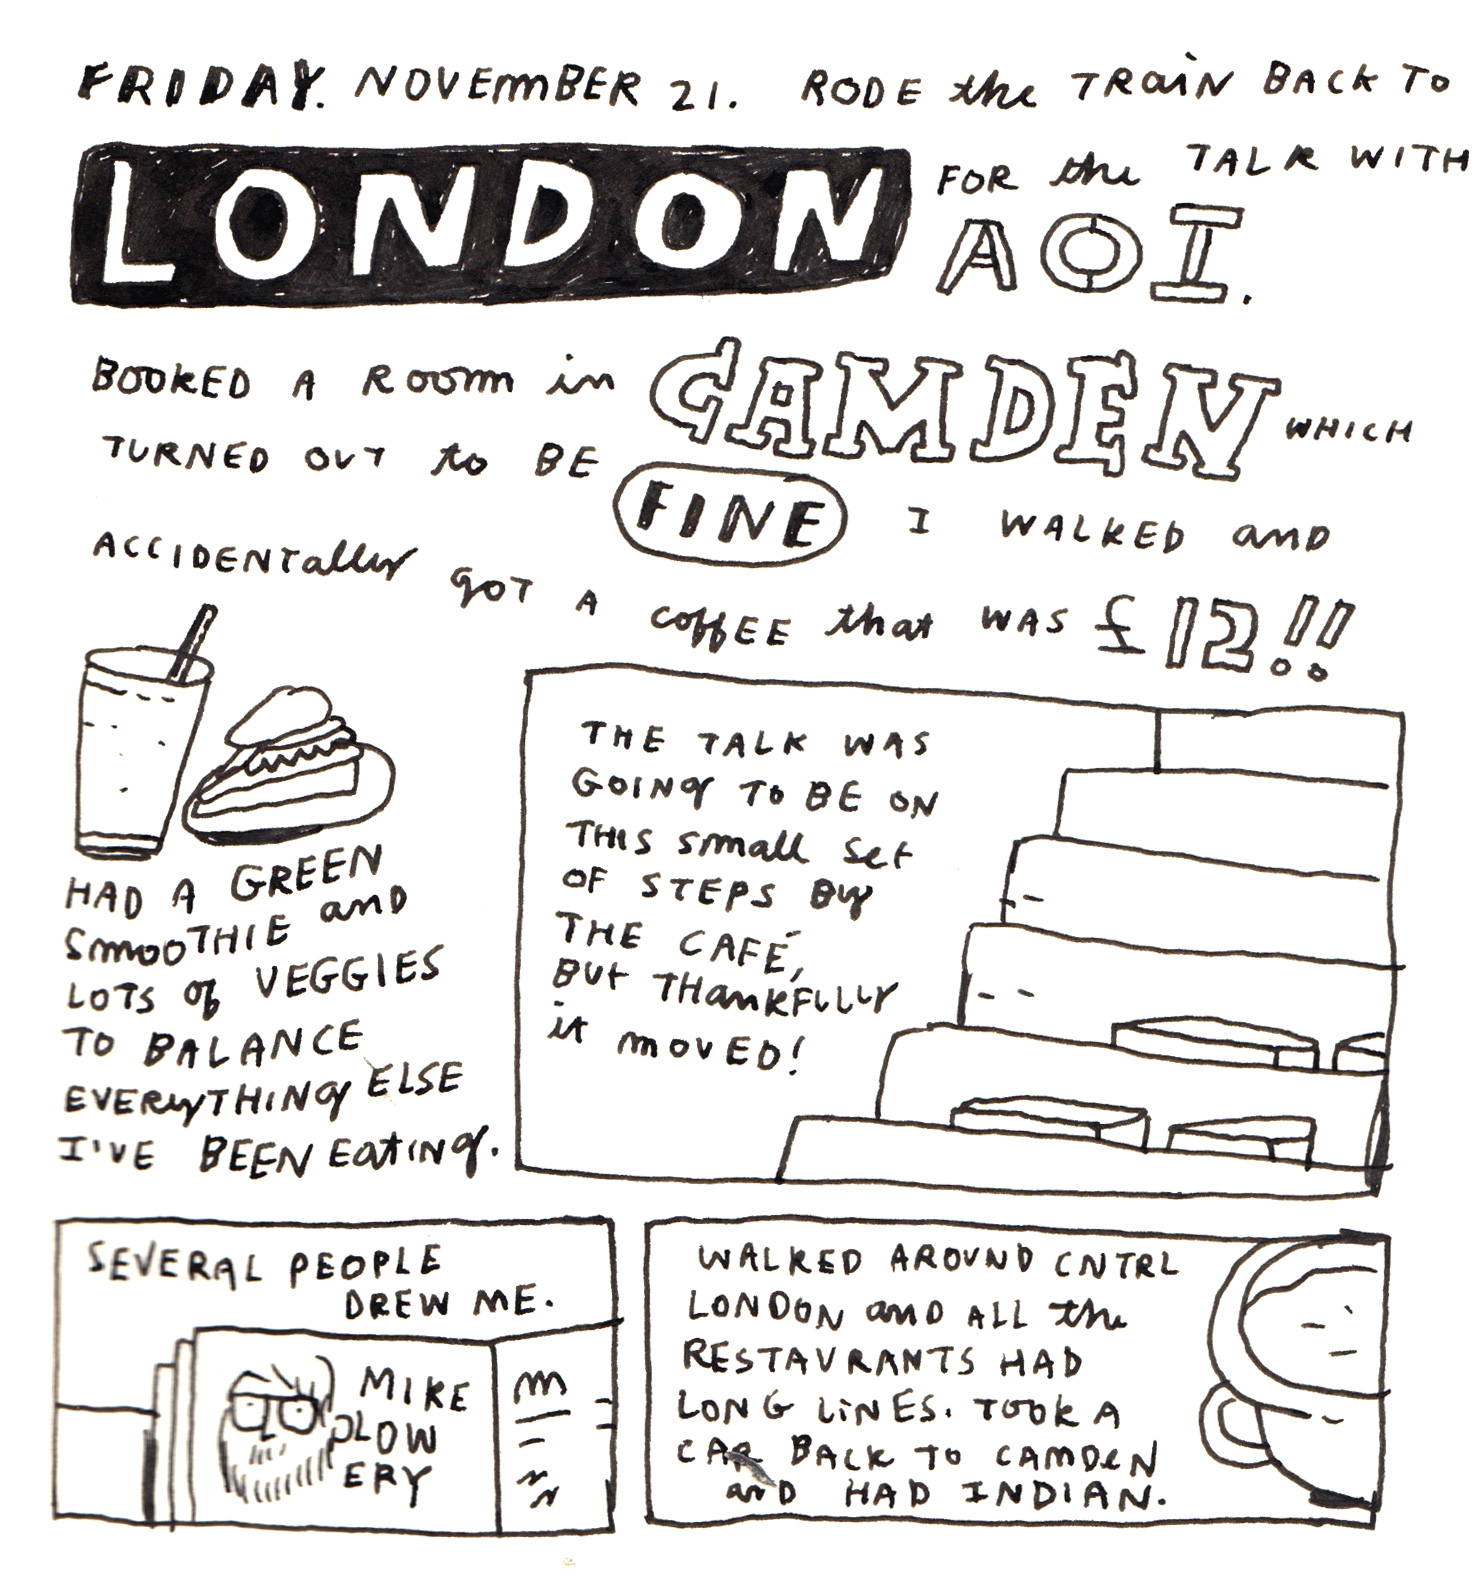 FRIDAY. NOVEMBER 21. RODE the TRAIN BACK TO
LONDON FOR the TALK WITH
AOI.
BOOKED A ROOM in CAMDEN WHICH
TURNED OUT to BE FINE I WALKED and
ACCIDENTally GOT A COFFEE that WAS £12!!
HAD A GREEN
SMOOTHIE and
LOTS of VEGGIES
TO BALANCE
EVERYTHING ELSE
I'VE BEEN EATING.
THE TALK WAS
GOING TO BE ON
THIS small set
OF STEPS BY
THE CAFÉ,
BUT THANKFULLY
it MOVED!
SEVERAL PEOPLE
DREW ME.
MIKE
LOW
ERY
WALKED AROUND CNTRL
LONDON and ALL the
RESTAURANTS HAD
LONG LINES. TOOK A
CAR BACK TO CAMDEN
and HAD INDIAN.